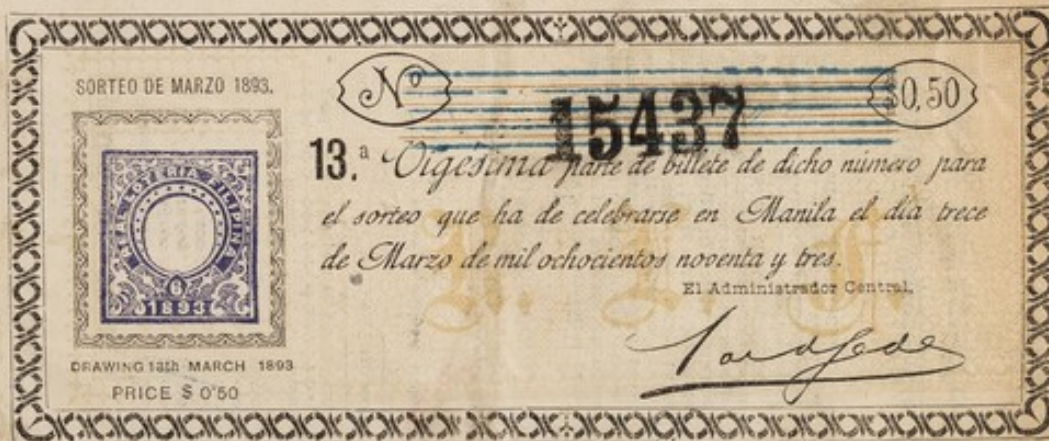 SORTEO DE MARZO 1893.
REAL LOTERIA FILIPINA
6
1893
DRAWING 13th MARCH 1893
PRICE $ 0'50
Nº
15437
$0,50
13.ª Vigesima parte de billete de dicho número para
el sorteo que ha de celebrarse en Manila el dia trece
de Marzo de mil ochocientos noventa y tres.
El Administrador Central,
R. L. F.